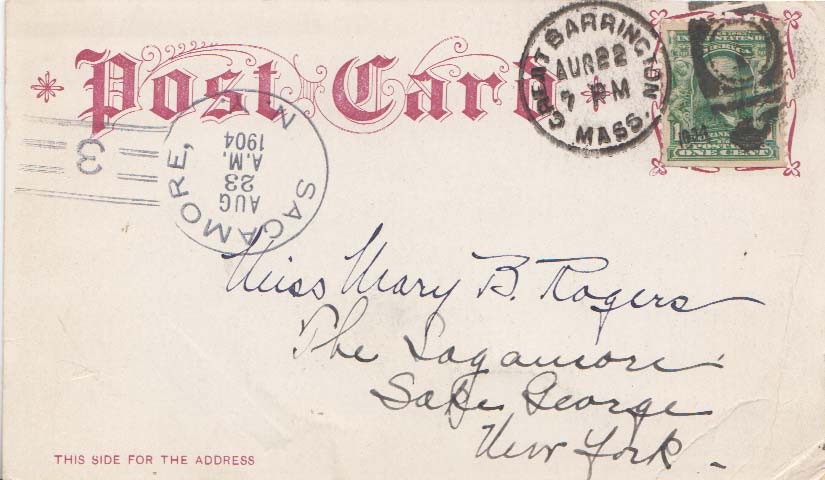 Post Card
GREAT BARRINGTON
AUG 22
7 PM
MASS.
ONE CENT
SAGAMORE, N
AUG
23
A.M.
1904
3
Miss Mary B. Rogers
The Sagamore
Lake George
New York
THIS SIDE FOR THE ADDRESS